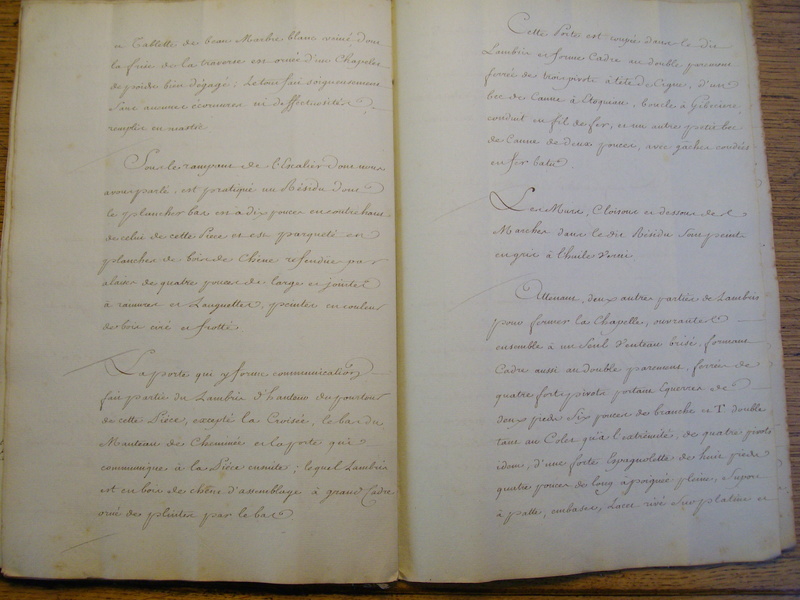 et Tablette de beau Marbre blanc veiné dont
la frise de la traverse est orné d'un Chapelet
de poids bien dégagé; Le tout fait soigneusement
sans aucunes écornures ni deffectuosités
remplies en mastic
Sous le rampant de l'Escalier dont nous
avons parlé, est pratiqué un Résidu dont
le plancher bas est a dix pouces en contre haut
de celui de cette Piece et est parqueté en
planches de bois de Chêne refendues par
alaises de quatre pouces de large et jointes
à rainures et Languettes, peintes en couleur
de bois ciré et frotté.
La porte qui y forme communication
fait partie du Lambris d'hauteur du pourtour
de cette Piéce, excepté la Croisée, le bas du
Manteau de Cheminée et la porte qui
communique à la Piéce ensuite; lequel Lambris
est en bois de chêne d'assemblage à grand Cadre
orné de plintes par le bas
Cette Porte est coupée dans le dit
Lambris et forme Cadre au double parement
ferrée de trois pivots à tête de Cigne, d'un
bec de Canne à boucle à Gibeciere
conduit en fil de fer, et un autre petit bec
de Canne de deux pouces, avec gâches coudées
en fer batu.
Les Murs, Cloisons et dessous de
Marches dans le dit Résidu sont peints
en gris à l'huile verni.
Attenant, deux autres parties de Lambris
pour former la Chapelle, ouvrantes
ensemble à un seul Venteau brisé, formant
Cadre aussi au double parement, ferrées de
quatre forts pivots portans Equerres de
deux pieds six pouces de branche en T double
tant au Colet qu'à l'extrémité, de quatre pivots
idem, d'une forte Espagnolette de huit pieds
quatre pouces de long à poignée pleine, Support
à patte, embases, Lacet rivé sur platine et